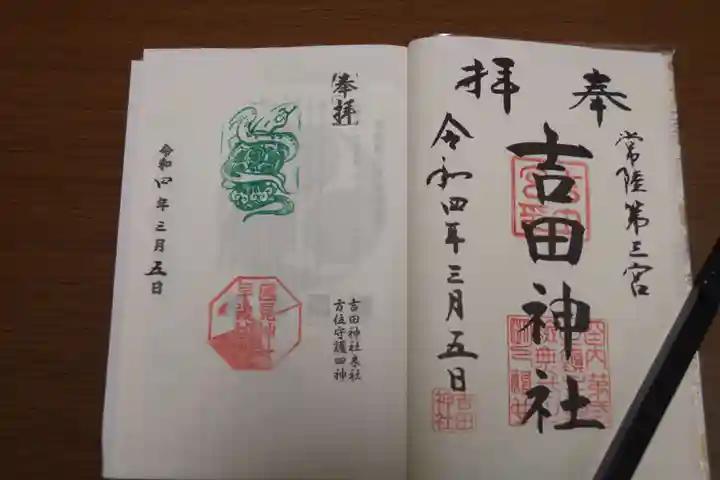 奉拝
常陸第三宮
吉田神社
令和四年三月五日
吉田
神社
奉拝
吉田神社末社
方位守護四神
令和四年三月五日